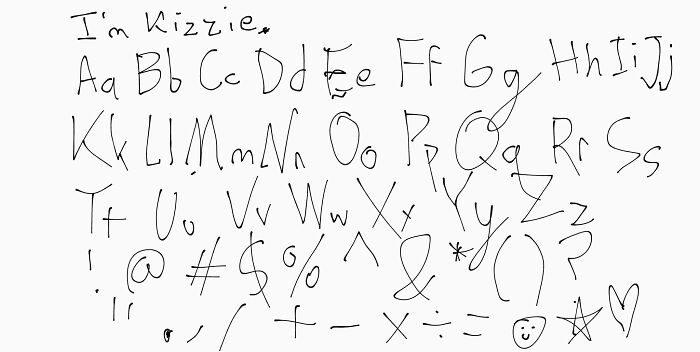 I'm Kizzie.
Aa Bb Cc Dd Ee Ff Gg Hh Ii Jj
Kk Ll Mm Nn Oo Pp Qq Rr Ss
Tt Uu Vv Ww Xx Yy Zz
! @ # $ % ^ & * ( ) ?
" . , / + - × ÷ = ☺ ☆ ♡